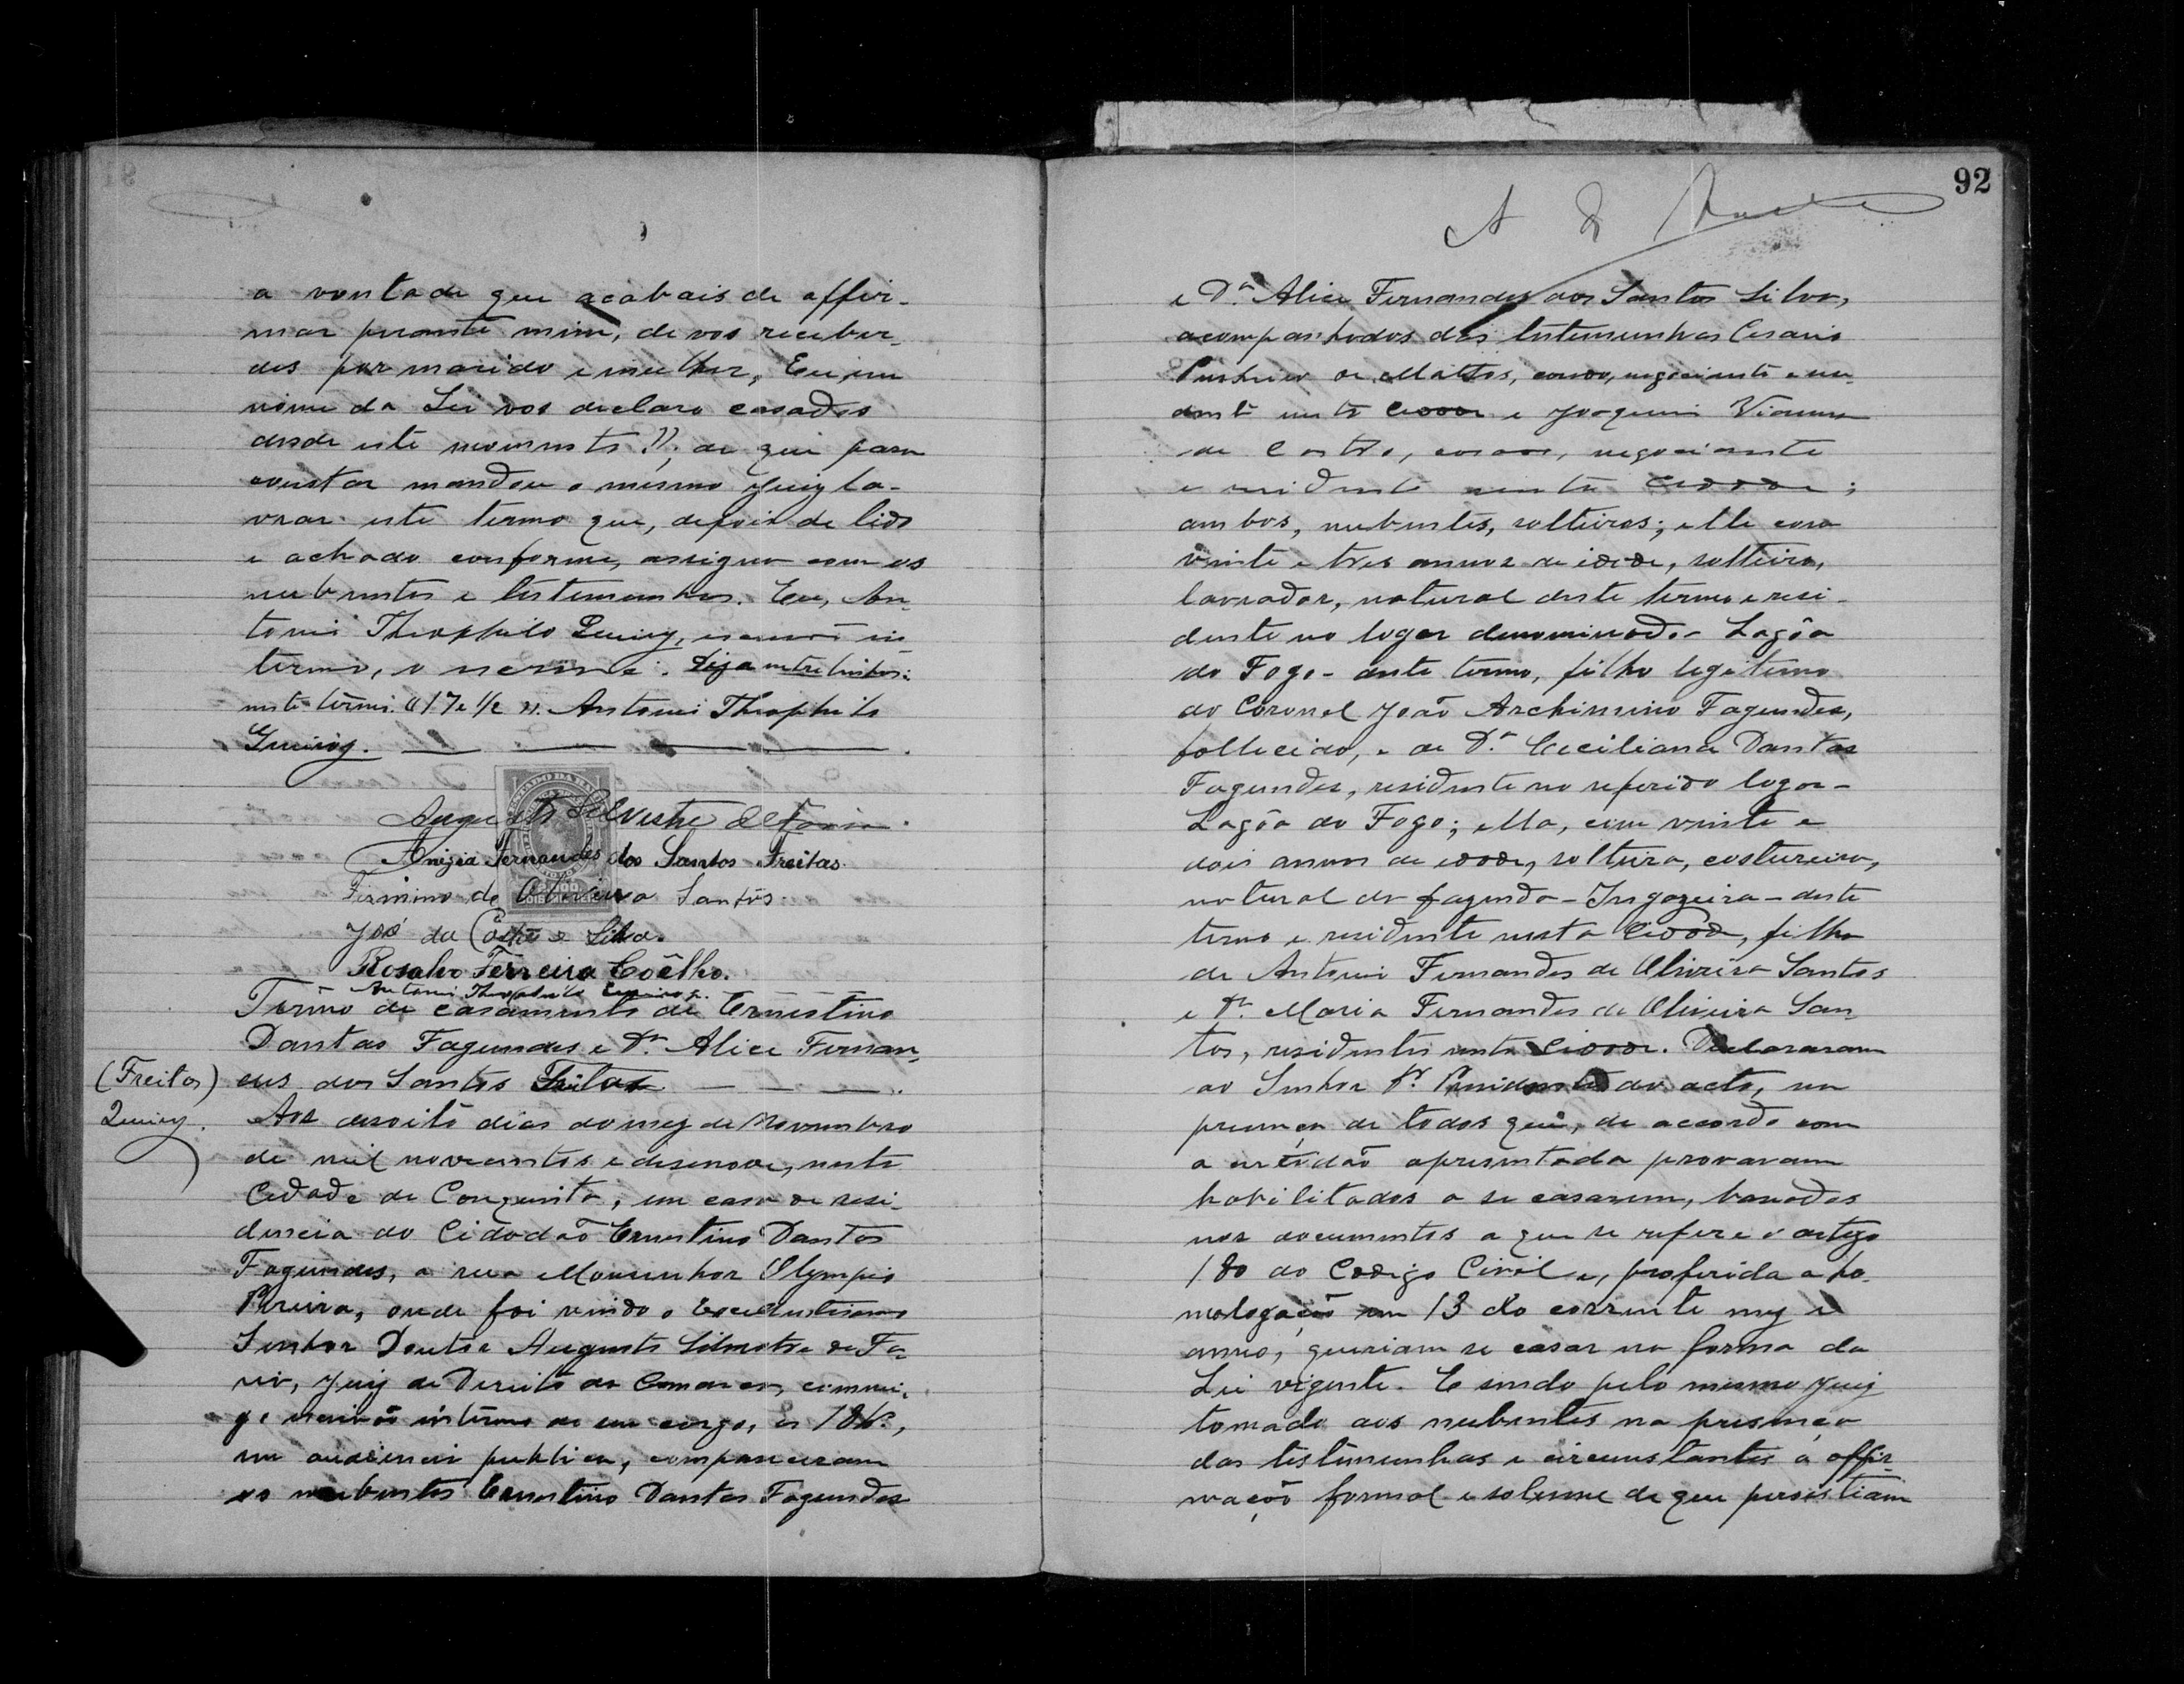 a vontade que acabais de affir-
mar perante mim, de vos receber-
des por marido e mulher, Eu, em
nome da Lei vos declaro casados
desde este momento"; de que para
constar mandou o mesmo Juiz la-
vrar este termo que, depois de lido
e achado conforme, assigna com os
nubentes e testemunhas. Eu, An-
tonio Theophilo Queiroz, escrivão in-
terino, o escrevi. Digo entre linhas:
neste termo "17 e 1/2". Antonio Theophilo
Queiroz.
Augusto Silvestre de Faria.
Anizia Fernandes dos Santos Freitas.
Firmino de Oliveira Santos.
José da Costa e Silva.
Rosalvo Ferreira Coêlho.
Antonio Theophilo Queiroz.
Termo de casamento de Ernestino
Dantas Fagundes e Dª. Alice Fernan-
(Freitas) des dos Santos Freitas
Queiroz. Aos desoito dias do mez de Novembro
de mil novecentos e desenove, nesta
Cidade de Conquista, em casa de resi-
dencia do Cidadão Ernestino Dantas
Fagundes, a rua Monsenhor Olympio
Pereira, onde foi vindo o Excellentissimo
Senhor Doutor Augusto Silvestre de Fa-
ria, Juiz de Direito da Comarca, commi-
go escrivão interino de seu cargo, as 18 h.,
em audiencia publica, compareceram
os nubentes Ernestino Dantas Fagundes
92
e Dª. Alice Fernandes dos Santos Silva,
acompanhados das testemunhas Cesario
Pinheiro de Mattos, casado, negociante e resi-
dente nesta Cidade e Joaquim Vianna
de Castro, casado, negociante
e residente nesta Cidade;
ambos, nubentes, solteiros; elle com
vinte e tres annos de idade, solteiro,
lavrador, natural deste termo e resi-
dente no logar denominado - Lagôa
do Fogo - deste termo, filho legitimo
do Coronel João Archimino Fagundes,
fallecido, e de Dª. Ceciliana Dantas
Fagundes, residente no referido logar -
Lagôa do Fogo; ella, com vinte e
dois annos de idade, solteira, costureira,
natural da fazenda - Ingazeira - deste
termo e residente nesta Cidade, filha
de Antonio Fernandes de Oliveira Santos
e Dª. Maria Fernandes de Oliveira San-
tos, residentes nesta Cidade. Declararam
ao Senhor Dr. Presidente do acto, na
presença de todos que, de accordo com
a certidão apresentada provavam
habilitados a se casarem, baseados
nos documentos a que se refere o artigo
180 do Codigo Civil e, proferida a ho-
mologação em 13 do corrente mez e
anno, queriam se casar na forma da
Lei vigente. E sendo pelo mesmo Juiz
tomado aos nubentes na presença
das testemunhas e circumstantes a affir-
mação formal e solemne de que persistiam